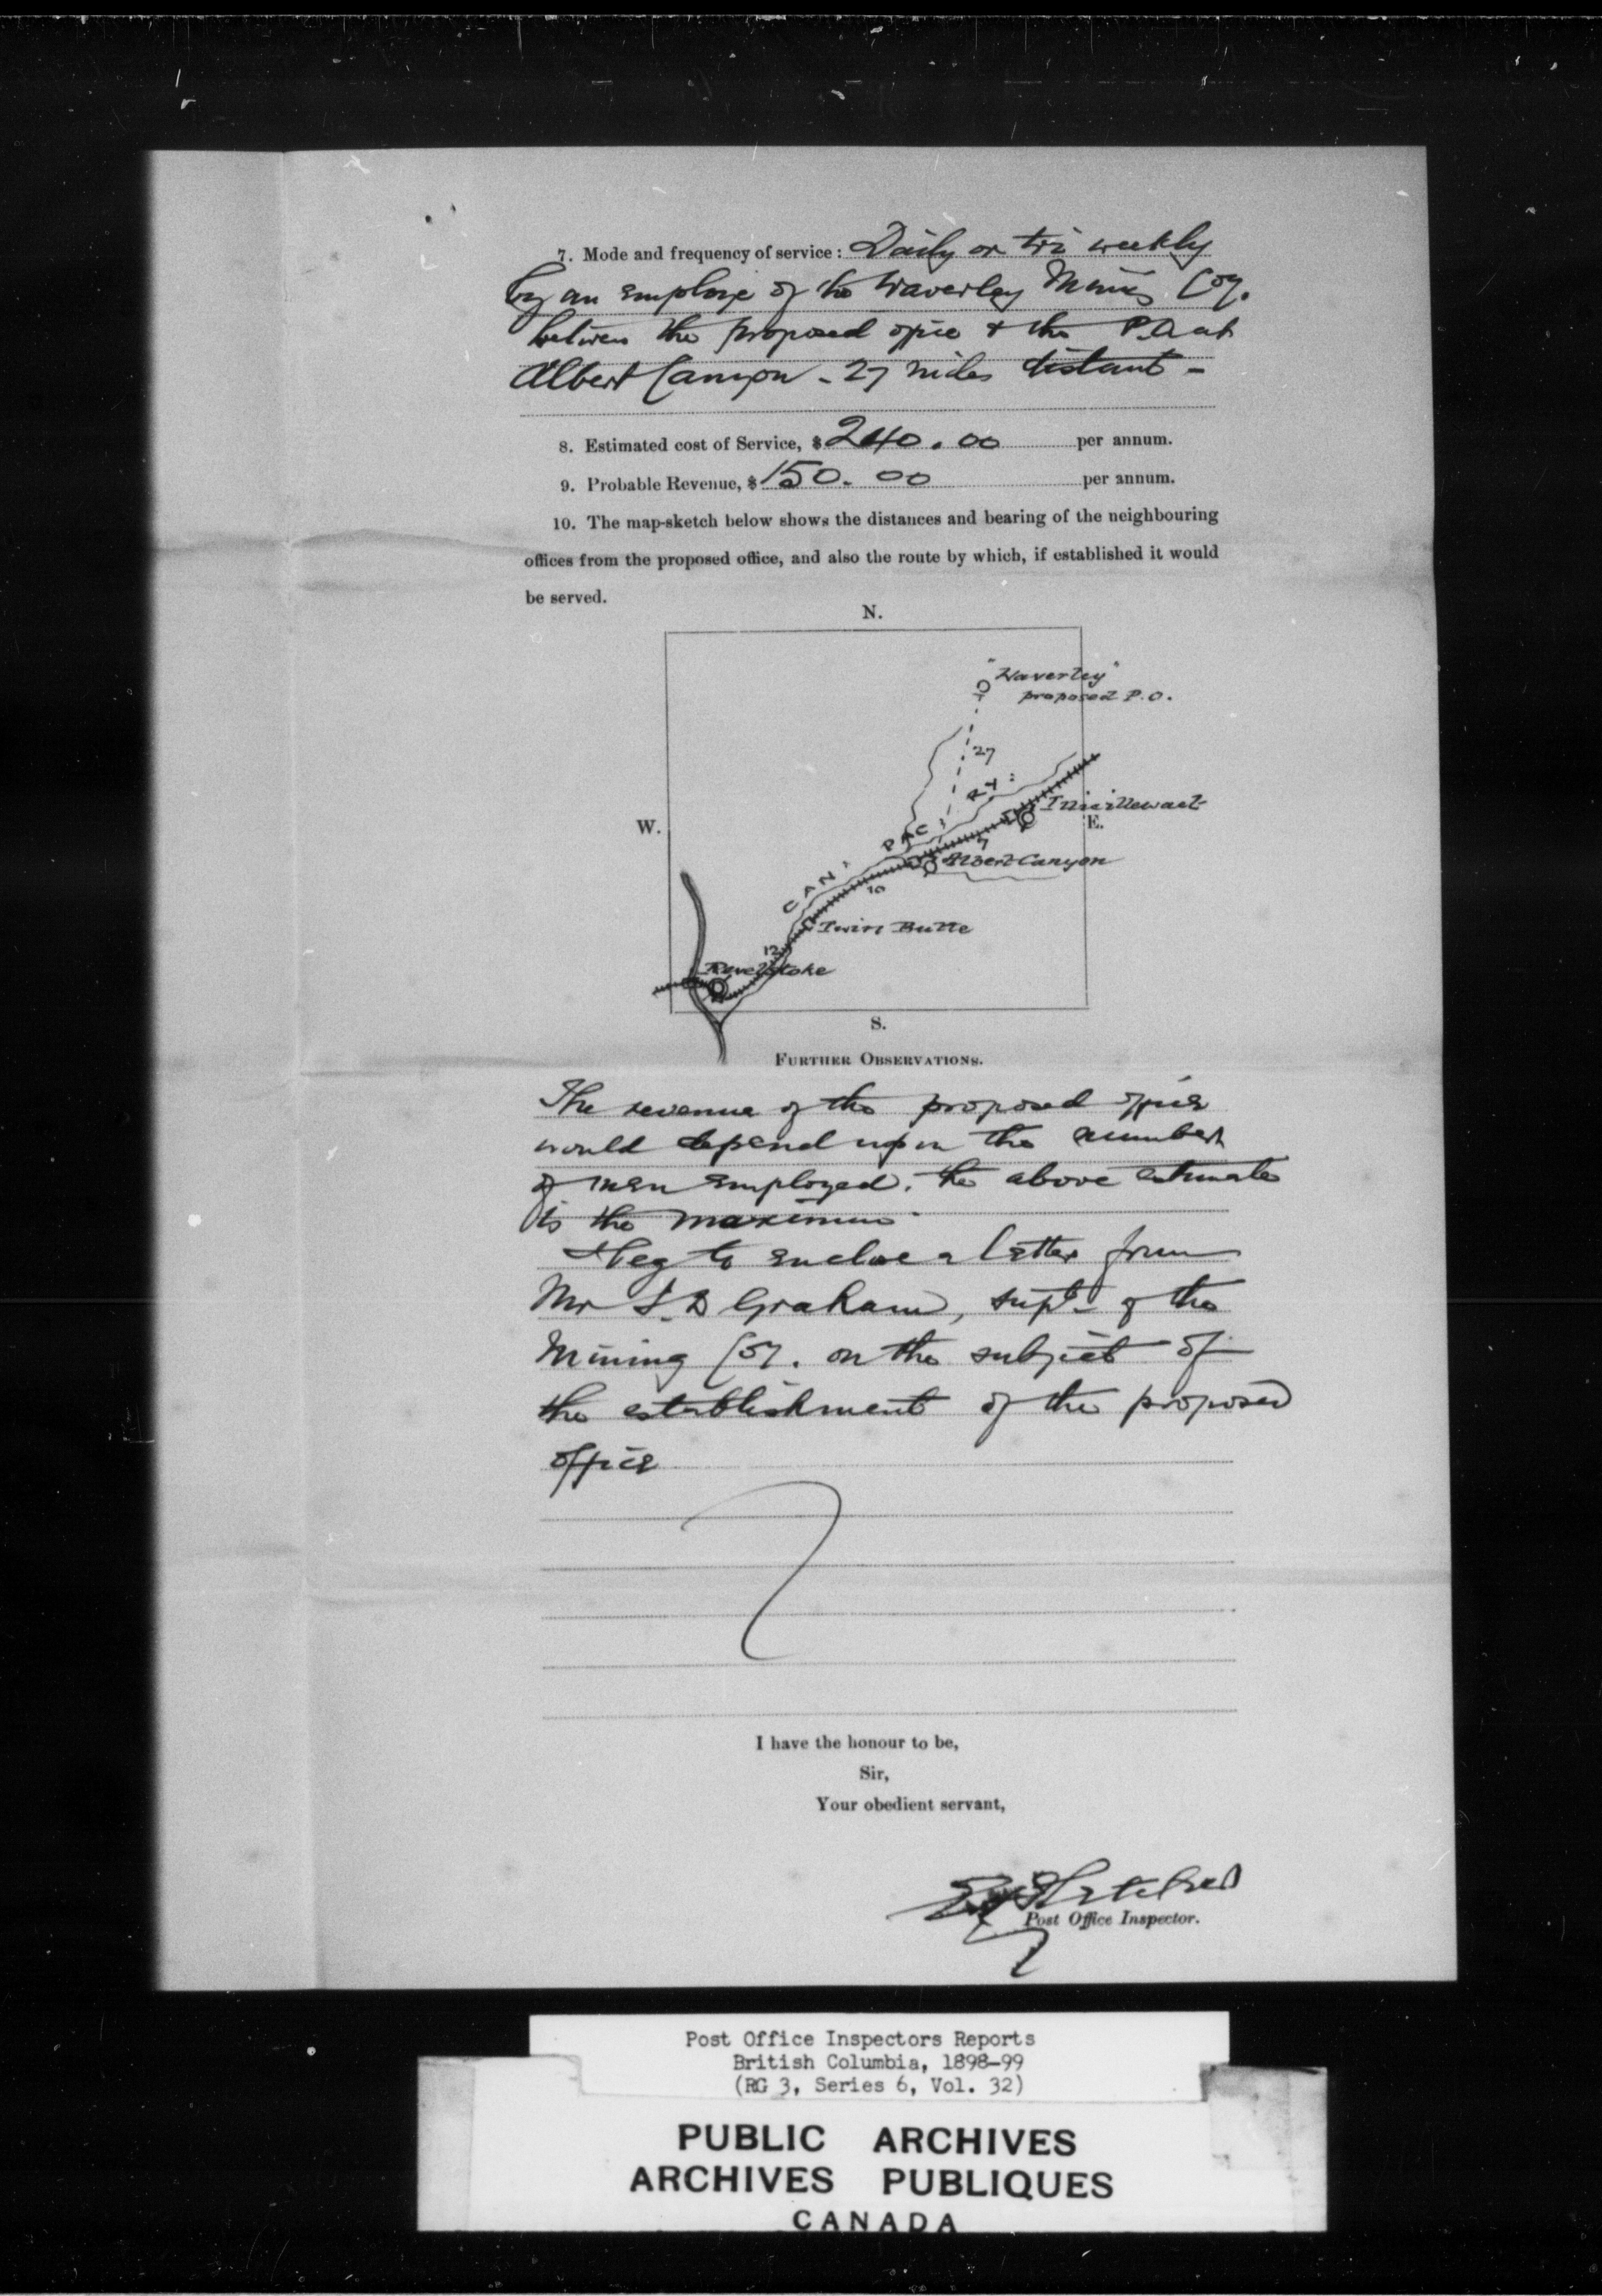 7. Mode and frequency of service: Daily or tri weekly
by an employe of the Waverley Mining Coy.
between the proposed office & the P.O at
Albert Canyon - 27 miles distant -
8. Estimated cost of Service, $ 240.00 per annum.
9. Probable Revenue, $ 150.00 per annum.
10. The map-sketch below shows the distances and bearing of the neighbouring
offices from the proposed office, and also the route by which, if established it would
be served.
N.
"Waverley"
proposed P.O.
27
CAN. PAC. RY:
Illicillewaet
W.
E.
7
Albert Canyon
10
Twin Butte
12
Revelstoke
S.
FURTHER OBSERVATIONS.
The revenue of the proposed office
would depend upon the number
of men employed. the above estimate
is the maximum.
I beg to enclose a letter from
Mr J. D Graham, supt. of the
Mining Coy. on the subject of
the establishment of the proposed
office
I have the honour to be,
Sir,
Your obedient servant,
Fletcher
Post Office Inspector.
Post Office Inspectors Reports
British Columbia, 1898-99
(RG 3, Series 6, Vol. 32)
PUBLIC ARCHIVES
ARCHIVES PUBLIQUES
CANADA